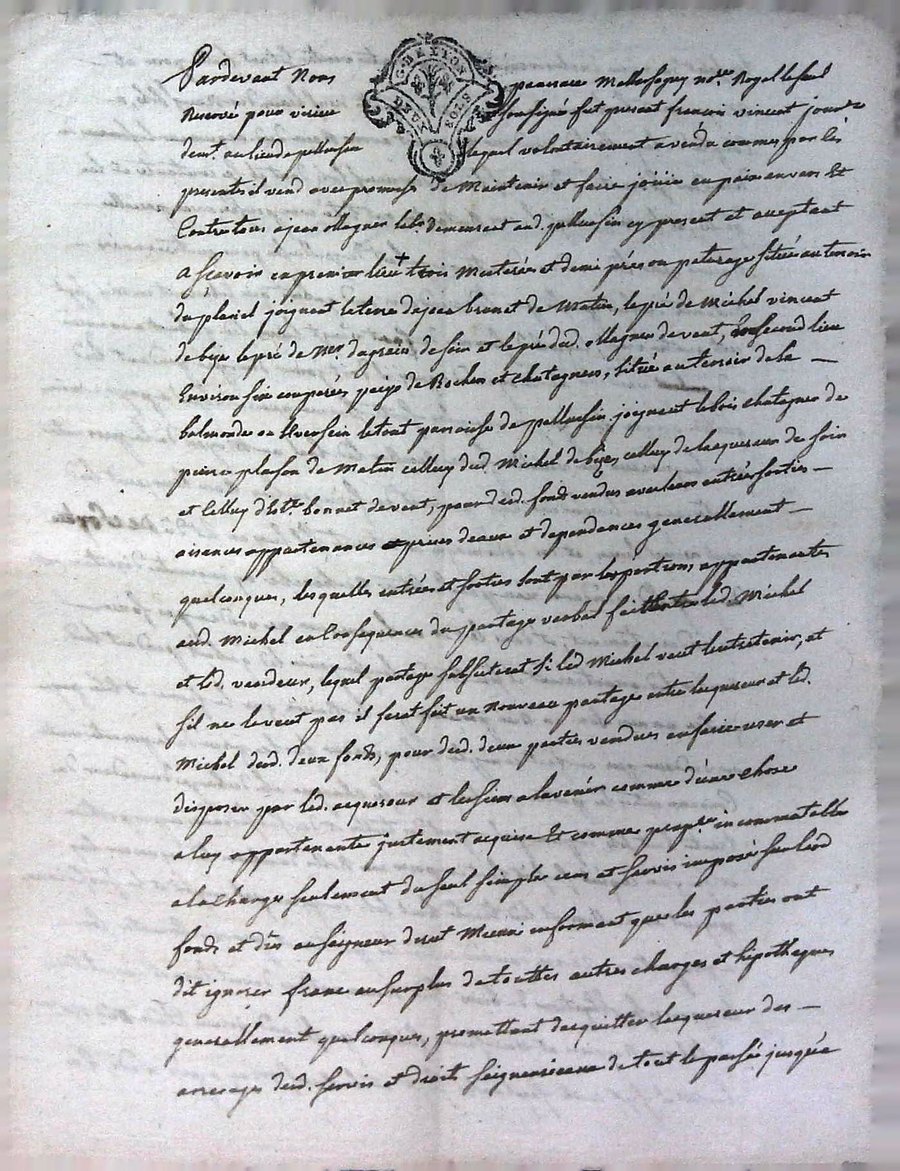 G. DE LYON
DEUX SOLS
Pardevant Nous notre Royal le seul
Reservé pour virieu soussigné fut present françois vincent
demt. au lieu de pellussin lequel volontairement a vendu comme par les
presentes il vend avec promesse de Maintenir et faire jouir en paix envers Et
Contre tous a jean Magner demeurant aud. pellussin cy present et acceptant
a sçavoir en premier lieu + trois Meterées et demi près ou paturage situé au terroir
du planil joignant la terre de jean brunet de Matin, le pré de Michel vincent
de bize le pré de Mr. de soir et le pré dud. Magner de vent, En second lieu
Environ six coupées pays de Rochers et chatagners, située au terroir de la —
balmonde ou Lversein le tout parroisse de pellussin joignant le bois chatagner de
pierre plason de Matin celluy dud. Michel de bize, celluy de lacquereur de soir
et Celluy d'Ete. bonnet de vent, pour desd. fonds vendus avec leurs entrées sorties —
aisances appartenances prises deaux et dependances generallement —
quelconques, lesquelles entrées et sorties sont par les portions appartenantes
aud. Michel en Consequence du partage verbal fait Entre led. Michel
et led. vendeur, lequel partage subsistera Si led Michel veut l'entretenir, et
sil ne le veut pas il serat fait un Nouveau partage entre lacquereur et led.
Michel desd. deux fonds, pour desd. deux parties vendues en faire user et
disposer par led. acquereur et les siens a lavenir comme d'une chose
a luy appartenante justement acquise Et comme propre incommutable
a la Charge seulement du seul simple cens et servis imposé sur lesd
fonds et dûs au seigneur dont Mieux informant que les parties ont
dit ignorer franc au surplus de touttes autres charges et hipotheques
generallement quelconques, promettant dacquitter lacquereur des —
arrerages desd. servis et droits seigneuriaux de tout le passé jusqu'a